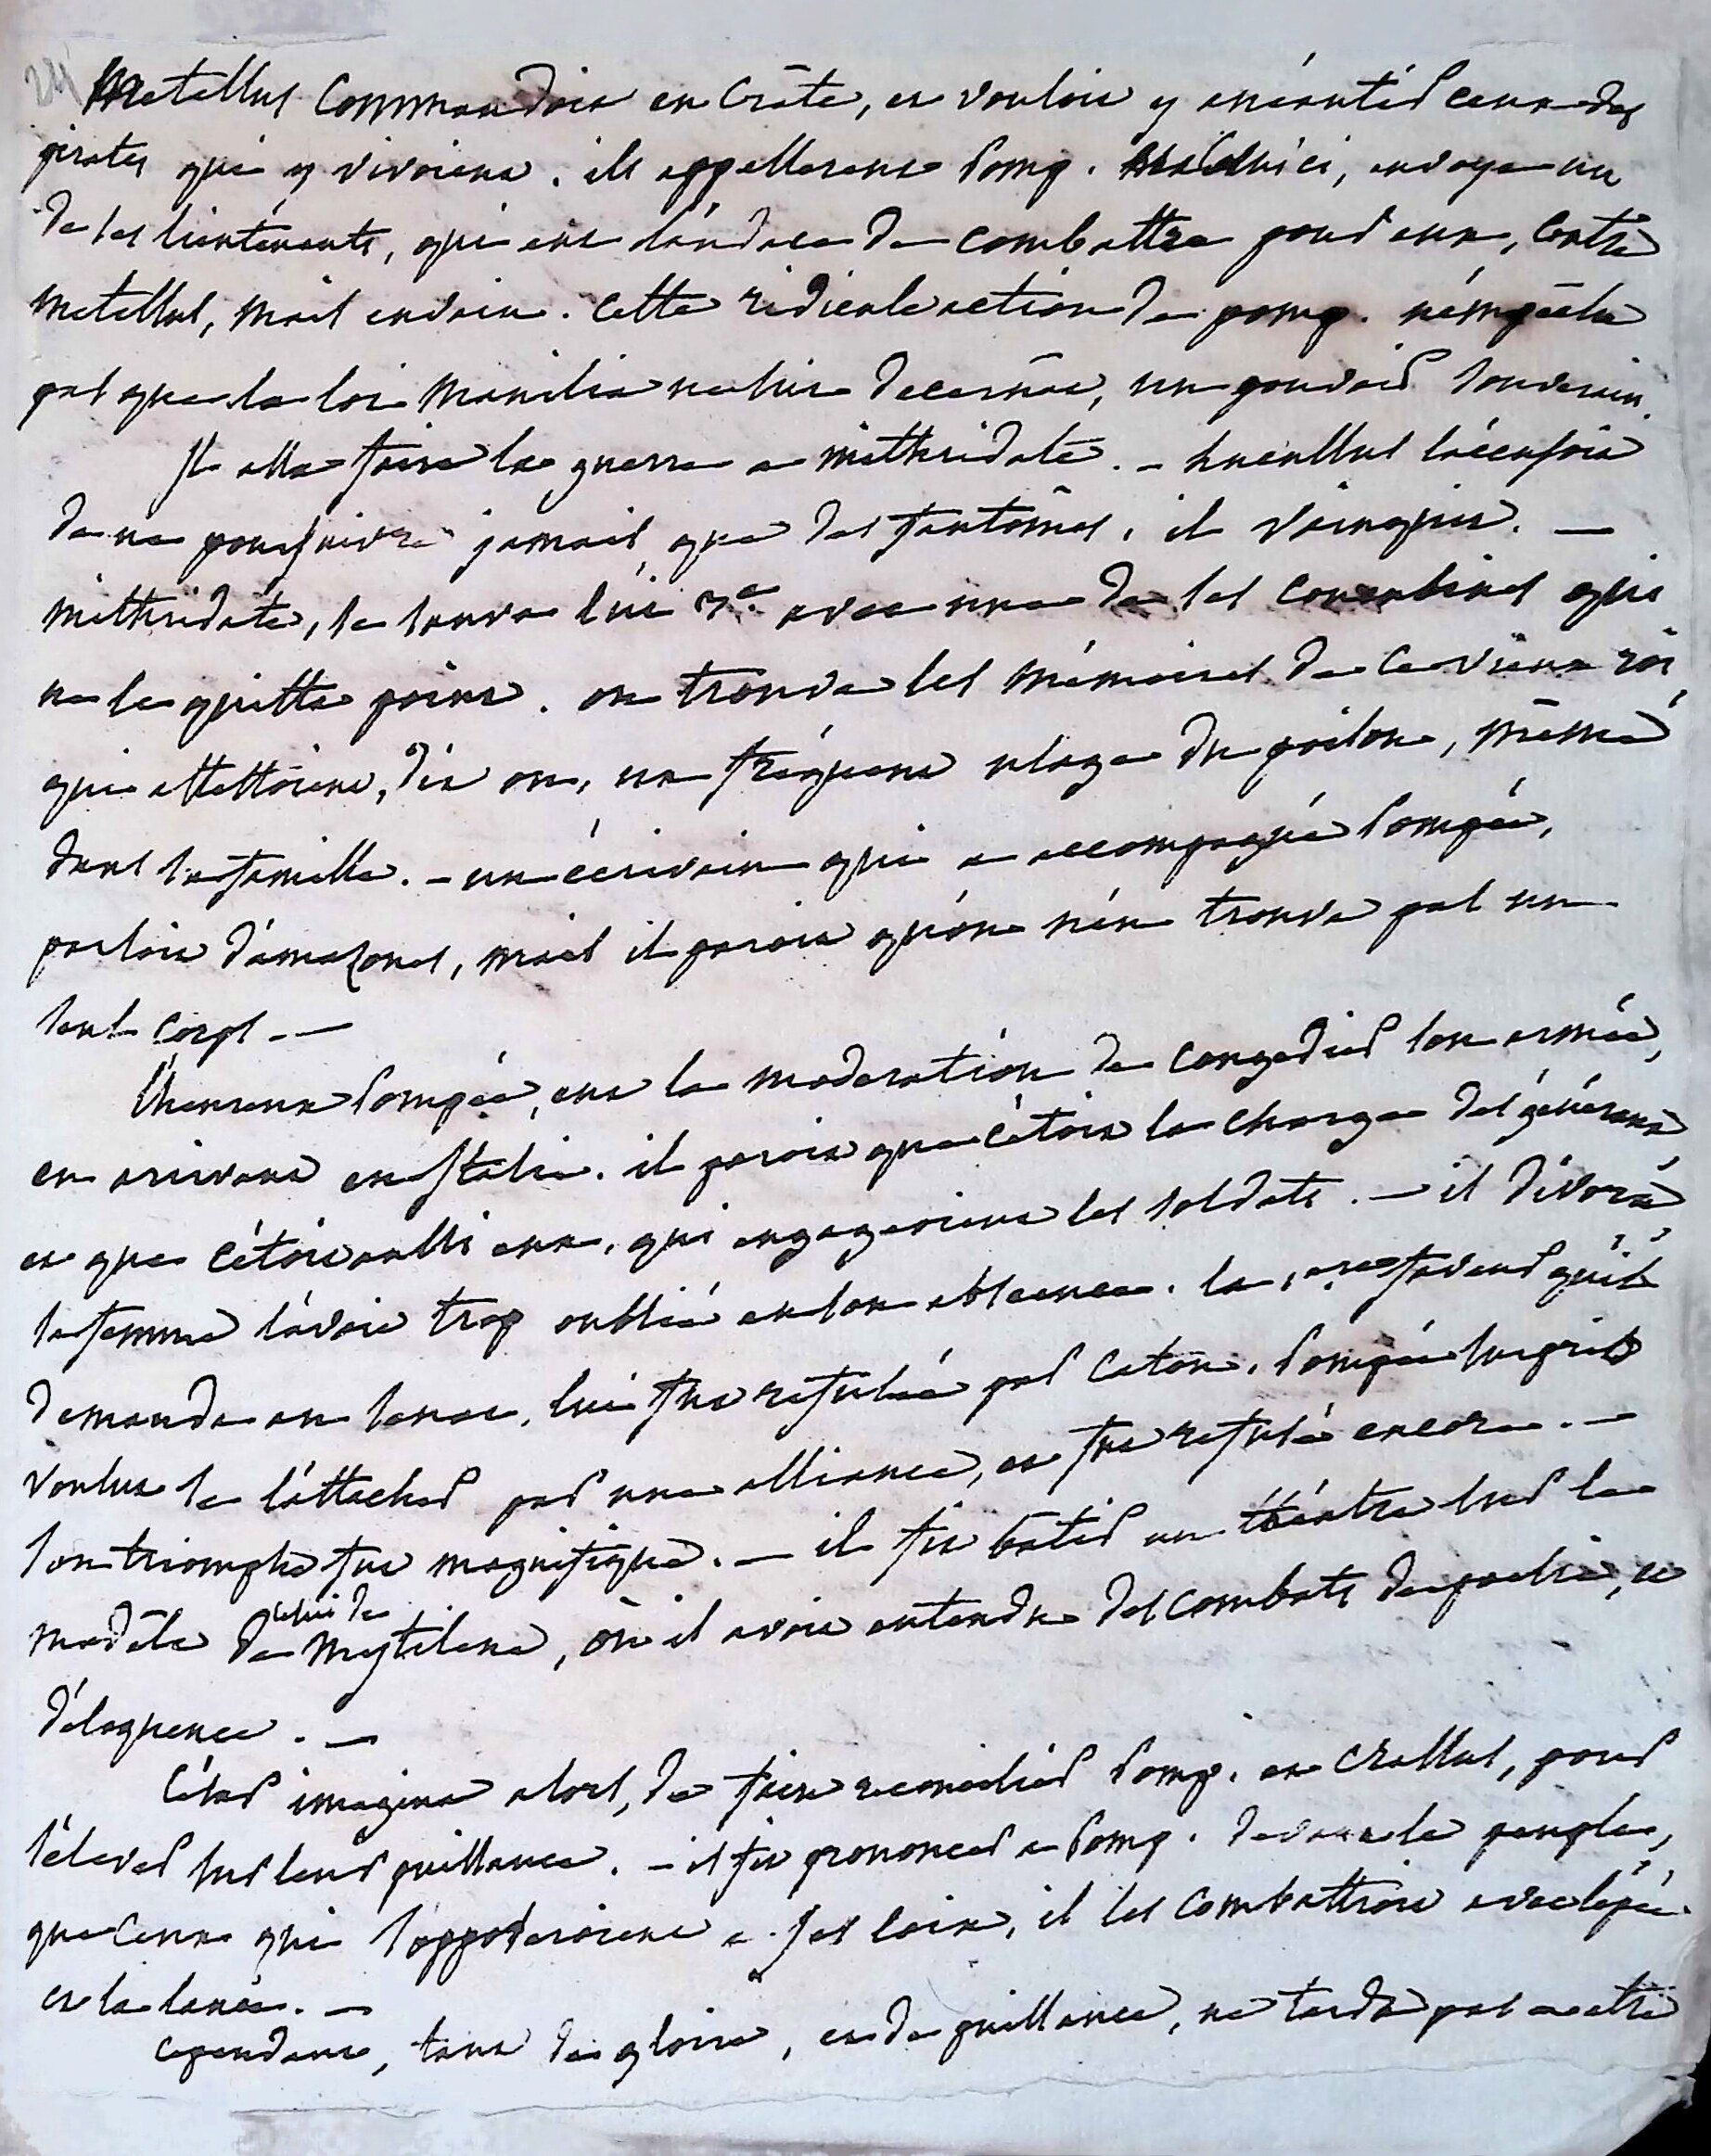 Metellus commandoit en Crête, et vouloit y anéantir ceux des
pirates qui y vivoient. ils appellerent Pomp. celui ci, envoya un
de ses lieutenants, qui eut l'audace de combattre pour eux, contre
Metellus, mais en vain. cette ridicule action de pomp. n'empêcha
pas que la loi Manilia ne lui decernât, un pouvoir souverain.
Il alla faire la guerre a mithridate. – Lucullus l'accusoit
de ne poursuivre jamais que des fantômes. il vainquit. —
mithridate, se sauva lui 3e. avec une de ses concubines qui
ne le quitta point. on trouva les mémoires de ce vieux roi,
qui attestoient, dit on, un fréquent usage du poison, même
dans sa famille. – un écrivain qui a accompagné Pompée,
parloit d'amazones, mais il paroit qu'on n'en trouva pas un
seul corps. —
L'heureux Pompée, eut la moderation de congedier son armée,
en arivant en Italie. il paroit que c'étoit la charge des généraux
et que c'étoit aussi eux, qui engageoient les soldats. — il divorça
sa femme l'avoit trop oublié en son absence. la faveur qu'il
demanda au senat, lui fut refusée par Caton. Pompée surpris
voulut se l'attacher par une alliance, et fut refusé encore. —
son triomphe fut magnifique. — il fit bâtir un théatre sur le
modèle de celui de Mytilene, où il avoit entendu des combats de poesie, et
d'éloquence. —
César imagina alors, de faire reconcilier Pomp. et Crassus, pour
s'élever sur leur puissance. – il fit prononcer a Pomp. devant le peuple,
que ceux qui s'opposeroient a ses loix, il les combattroit avec l'épée
et la lance. —
cependant, tant de gloire, et de puissance, ne tarda pas a etre